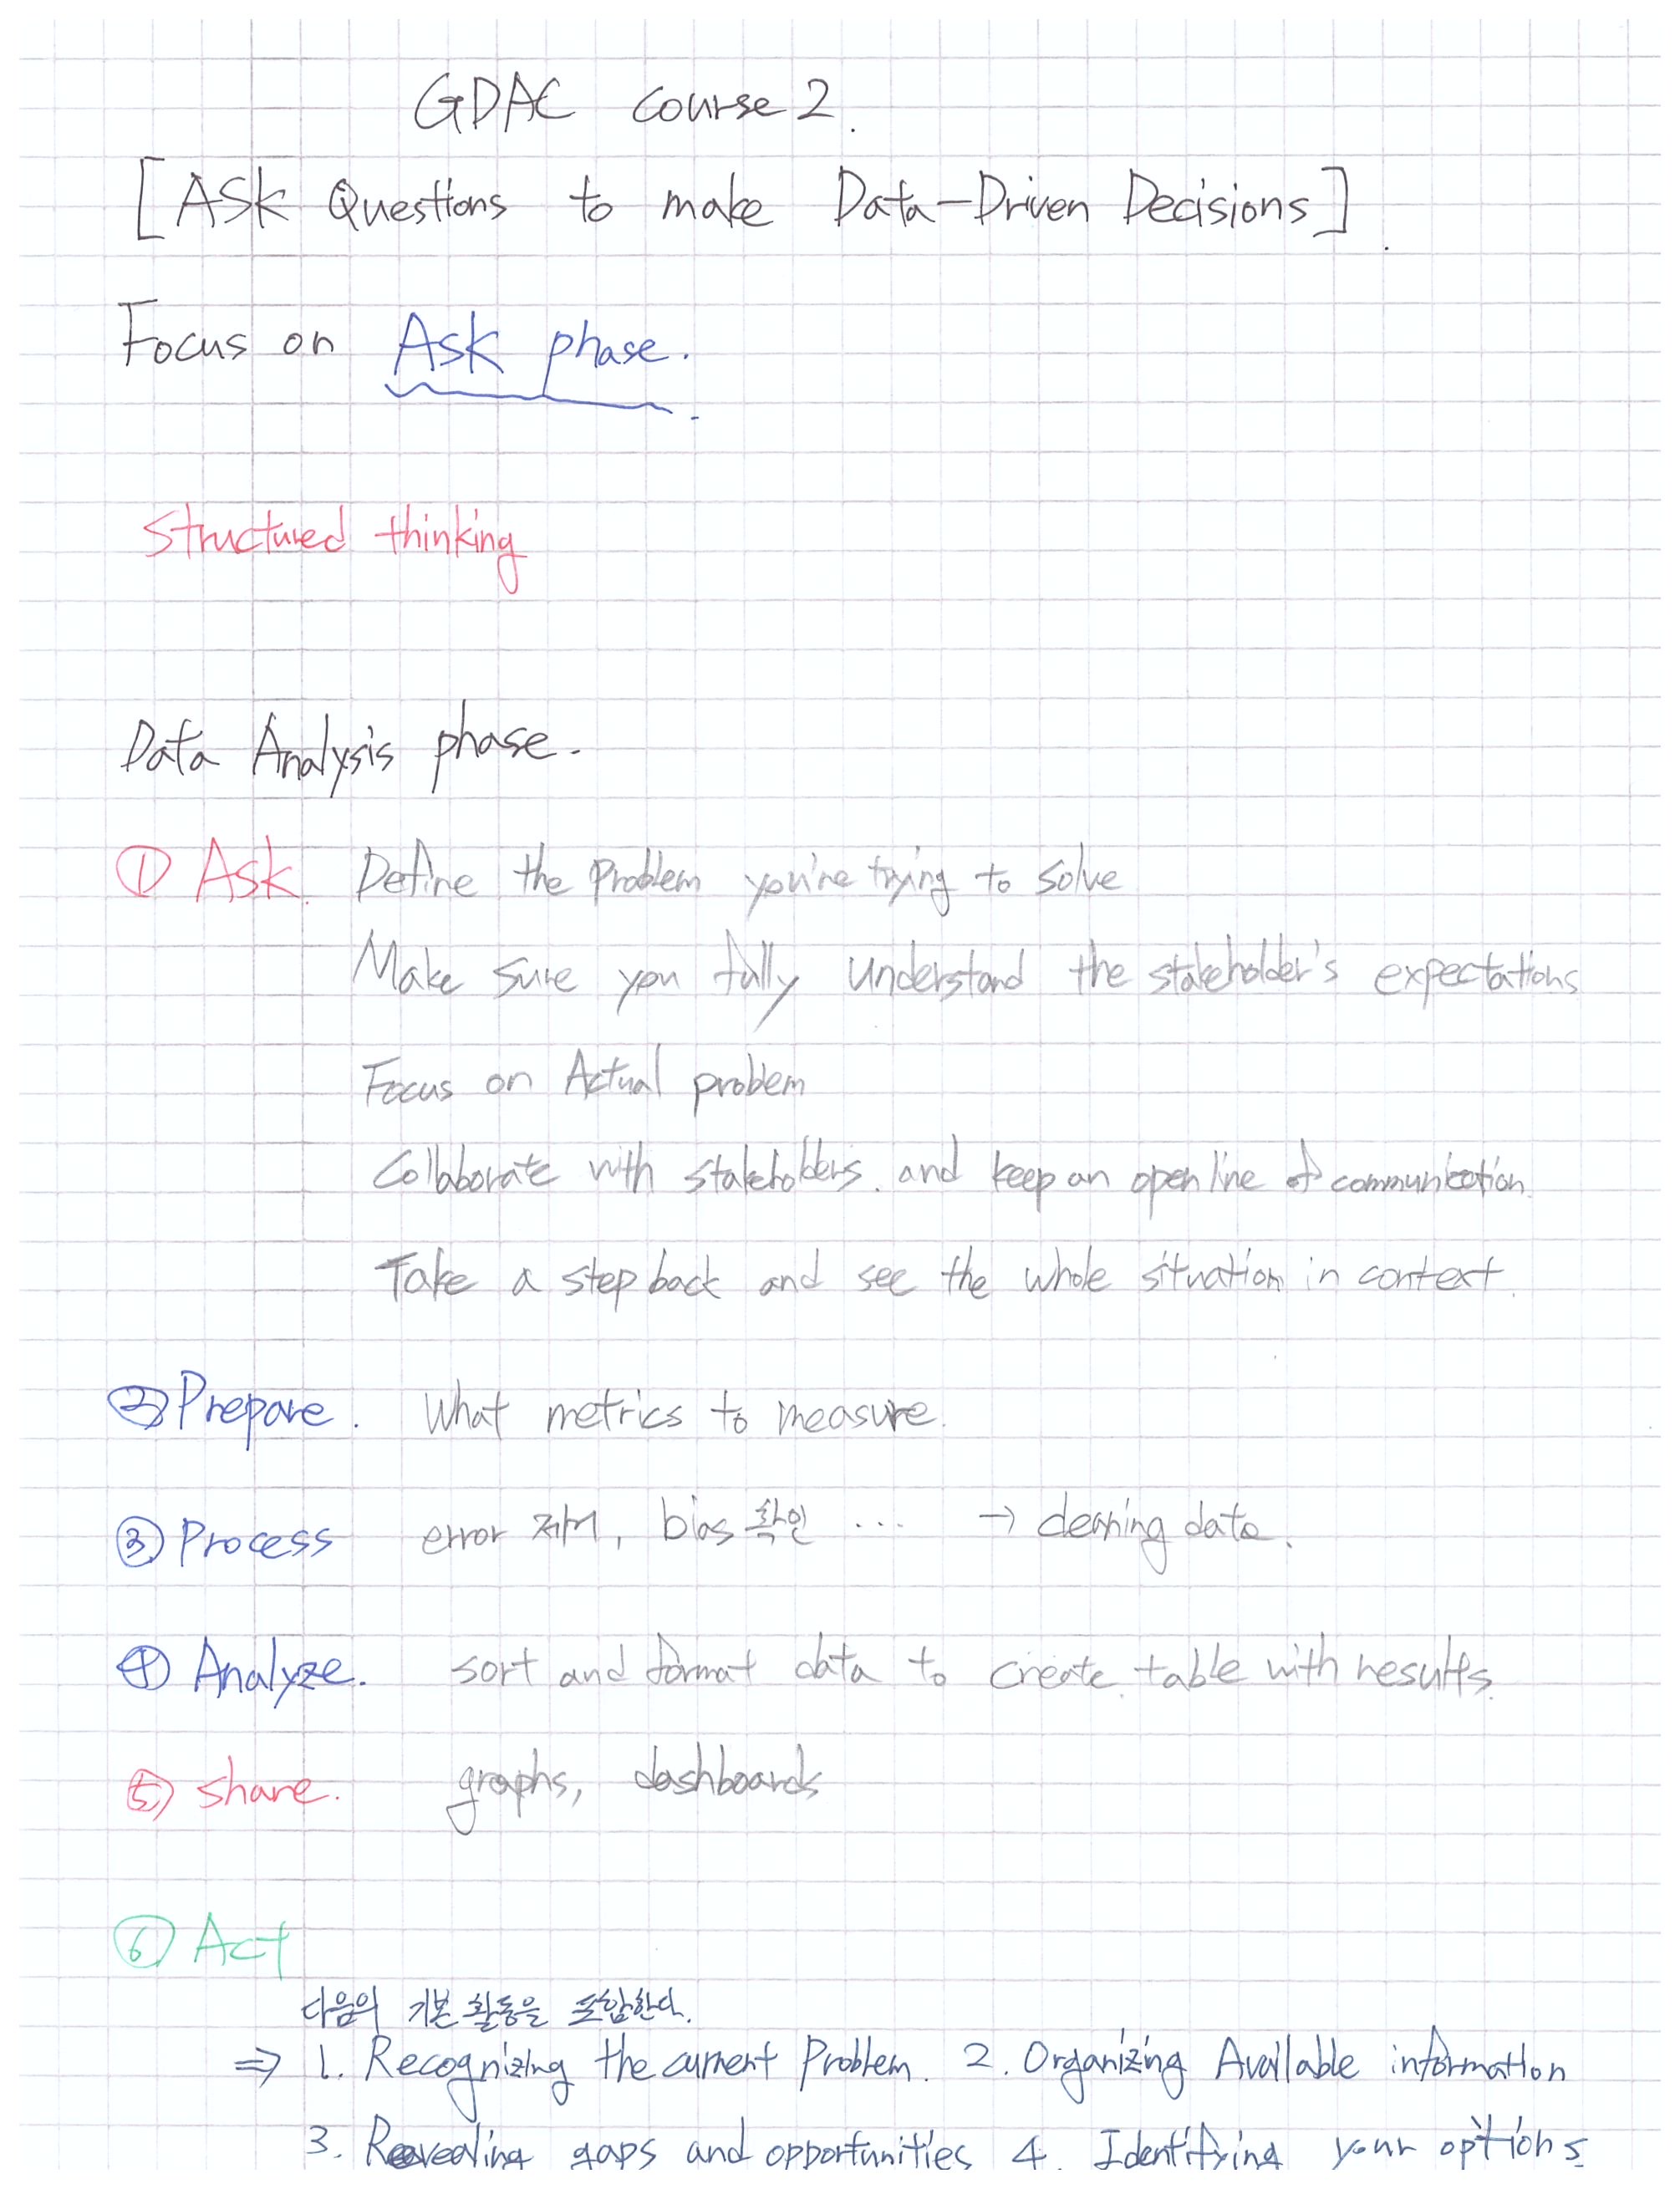 GDAC course 2.
[ASK Questions to make Data-Driven Decisions].
Focus on Ask phase.
Structured thinking
Data Analysis phase.
① Ask. Define the problem you're trying to solve
Make sure you fully understand the stakeholder's expectations
Focus on Actual problem
Collaborate with stakeholders. and keep an open line of communication.
Take a step back and see the whole situation in context.
② Prepare. What metrics to measure.
③ Process error 제거, bias 확인 ... → cleaning data.
④ Analyze. sort and format data to create table with results.
⑤ share. graphs, dashboards
⑥ Act
다음의 기본 활동을 포함한다.
⇒ 1. Recognizing the current Problem. 2. Organizing Available information
3. Revealing gaps and opportunities 4. Identifying your options